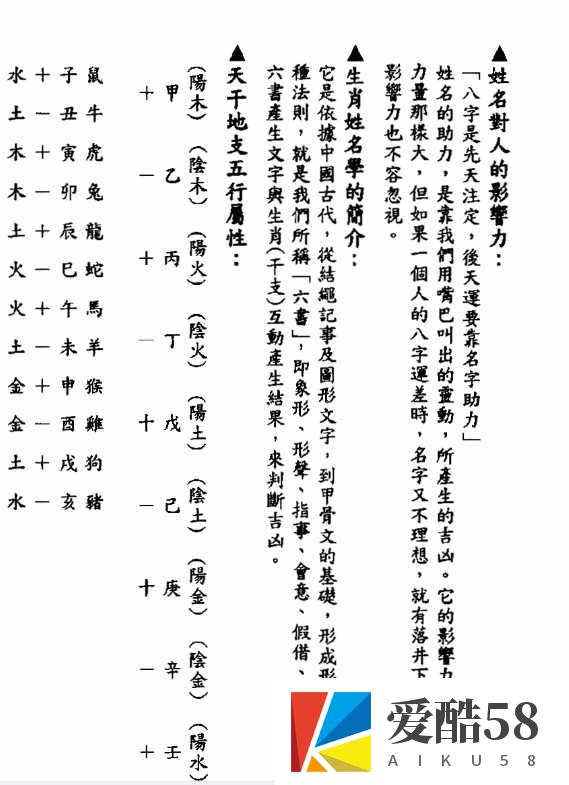 ▲姓名對人的影響力：
「八字是先天注定，後天運要靠名字助力」
姓名的助力，是靠我們用嘴巴叫出的靈動，所產生的吉凶。它的影響力
力量那樣大，但如果一個人的八字運差時，名字又不理想，就有落井下
影響力也不容忽視。
▲生肖姓名學的簡介：
它是依據中國古代，從結繩記事及圖形文字，到甲骨文的基礎，形成形
種法則，就是我們所稱「六書」，即象形、形聲、指事、會意、假借、
六書產生文字與生肖(干支)互動產生結果，來判斷吉凶。
▲天干地支五行屬性：
(陽木) (陰木) (陽火) (陰火) (陽土) (陰土) (陽金) (陰金) (陽水)
甲 乙 丙 丁 戊 己 庚 辛 壬
＋ － ＋ － ＋ － ＋ － ＋
鼠 牛 虎 兔 龍 蛇 馬 羊 猴 雞 狗 豬
子 丑 寅 卯 辰 巳 午 未 申 酉 戌 亥
＋ － ＋ － ＋ － ＋ － ＋ － ＋ －
水 土 木 木 土 火 火 土 金 金 土 水
爱酷58
AIKU58